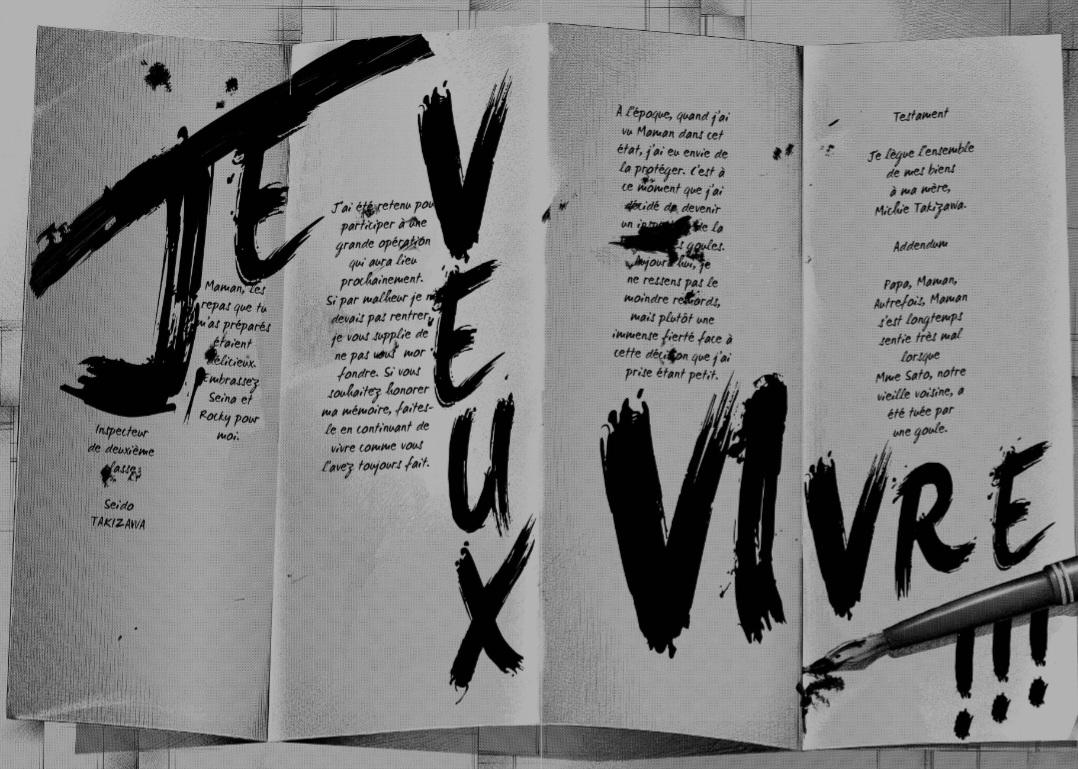 Testament
Je lègue l'ensemble
de mes biens
à ma mère,
Michie Takizawa.
Addendum
Papa, Maman,
Autrefois, Maman
s'est longtemps
sentie très mal
lorsque
Mme Sato, notre
vieille voisine, a
été tuée par
une goule.
À l'époque, quand j'ai
vu Maman dans cet
état, j'ai eu envie de
la protéger. C'est à
ce moment que j'ai
décidé de devenir
un de la
goules.
Aujourd'hui, je
ne ressens pas le
moindre remords,
mais plutôt une
immense fierté face à
cette décision que j'ai
prise étant petit.
J'ai été retenu pour
participer à une
grande opération
qui aura lieu
prochainement.
Si par malheur je ne
devais pas rentrer,
je vous supplie de
ne pas vous mor-
fondre. Si vous
souhaitez honorer
ma mémoire, faites-
le en continuant de
vivre comme vous
l'avez toujours fait.
Maman, les
repas que tu
m'as préparés
étaient
délicieux.
Embrassez
Seina et
Rocky pour
moi.
Inspecteur
de deuxième
classe,
Seido
TAKIZAWA
JE
VEUX
VIVRE
!!!